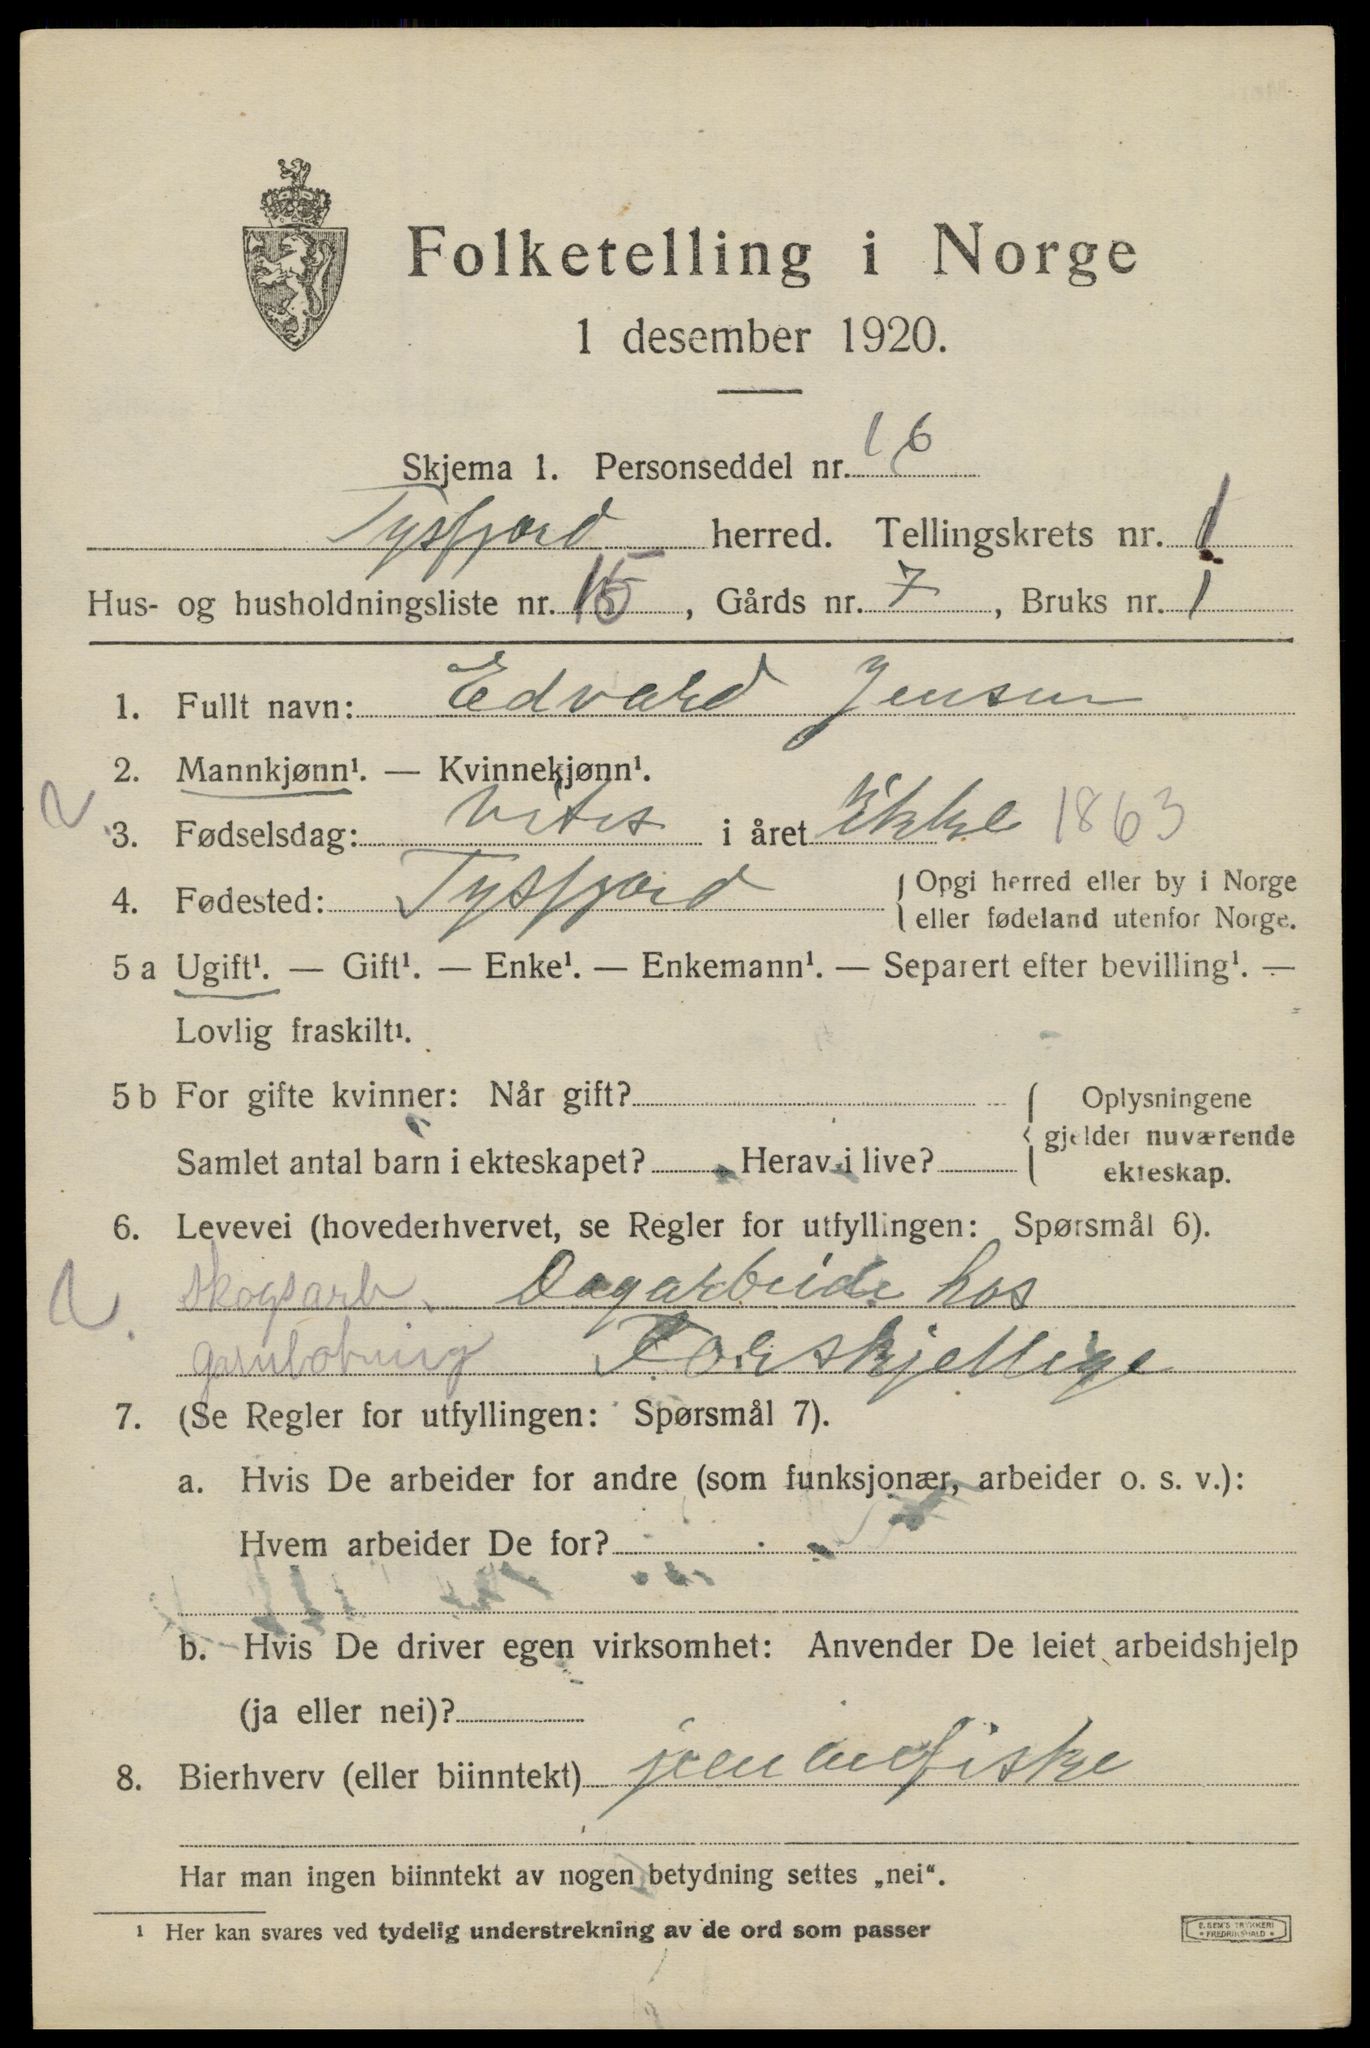 Folketelling i Norge
1 desember 1920.
Skjema 1. Personseddel nr. 16
Tysfjord herred. Tellingskrets nr. 1
Hus- og husholdningsliste nr. 15, Gårds nr. 7, Bruks nr. 1
1. Fullt navn: Edvard Jensen
2. Mannkjønn¹. — Kvinnekjønn¹.
3. Fødselsdag: Vites i året Ikke 1863
4. Fødested: Tysfjord { Opgi herred eller by i Norge
eller fødeland utenfor Norge.
5 a Ugift¹. — Gift¹. — Enke¹. — Enkemann¹. — Separert efter bevilling¹. —
Lovlig fraskilt¹.
5 b For gifte kvinner: Når gift? { Oplysningene
gjelder nuværende
Samlet antal barn i ekteskapet? Herav i live?
ekteskap.
6. Levevei (hovederhvervet, se Regler for utfyllingen: Spørsmål 6).
skogsarb. Dagarbeide hos
Forskjellige
7. (Se Regler for utfyllingen: Spørsmål 7).
a. Hvis De arbeider for andre (som funksjonær, arbeider o. s. v.):
Hvem arbeider De for?
b. Hvis De driver egen virksomhet: Anvender De leiet arbeidshjelp
(ja eller nei)?
8. Bierhverv (eller biinntekt)
Har man ingen biinntekt av nogen betydning settes „nei“.
¹ Her kan svares ved tydelig understrekning av de ord som passer
E. SEM'S TRYKKERI
* FREDRIKSHALD *